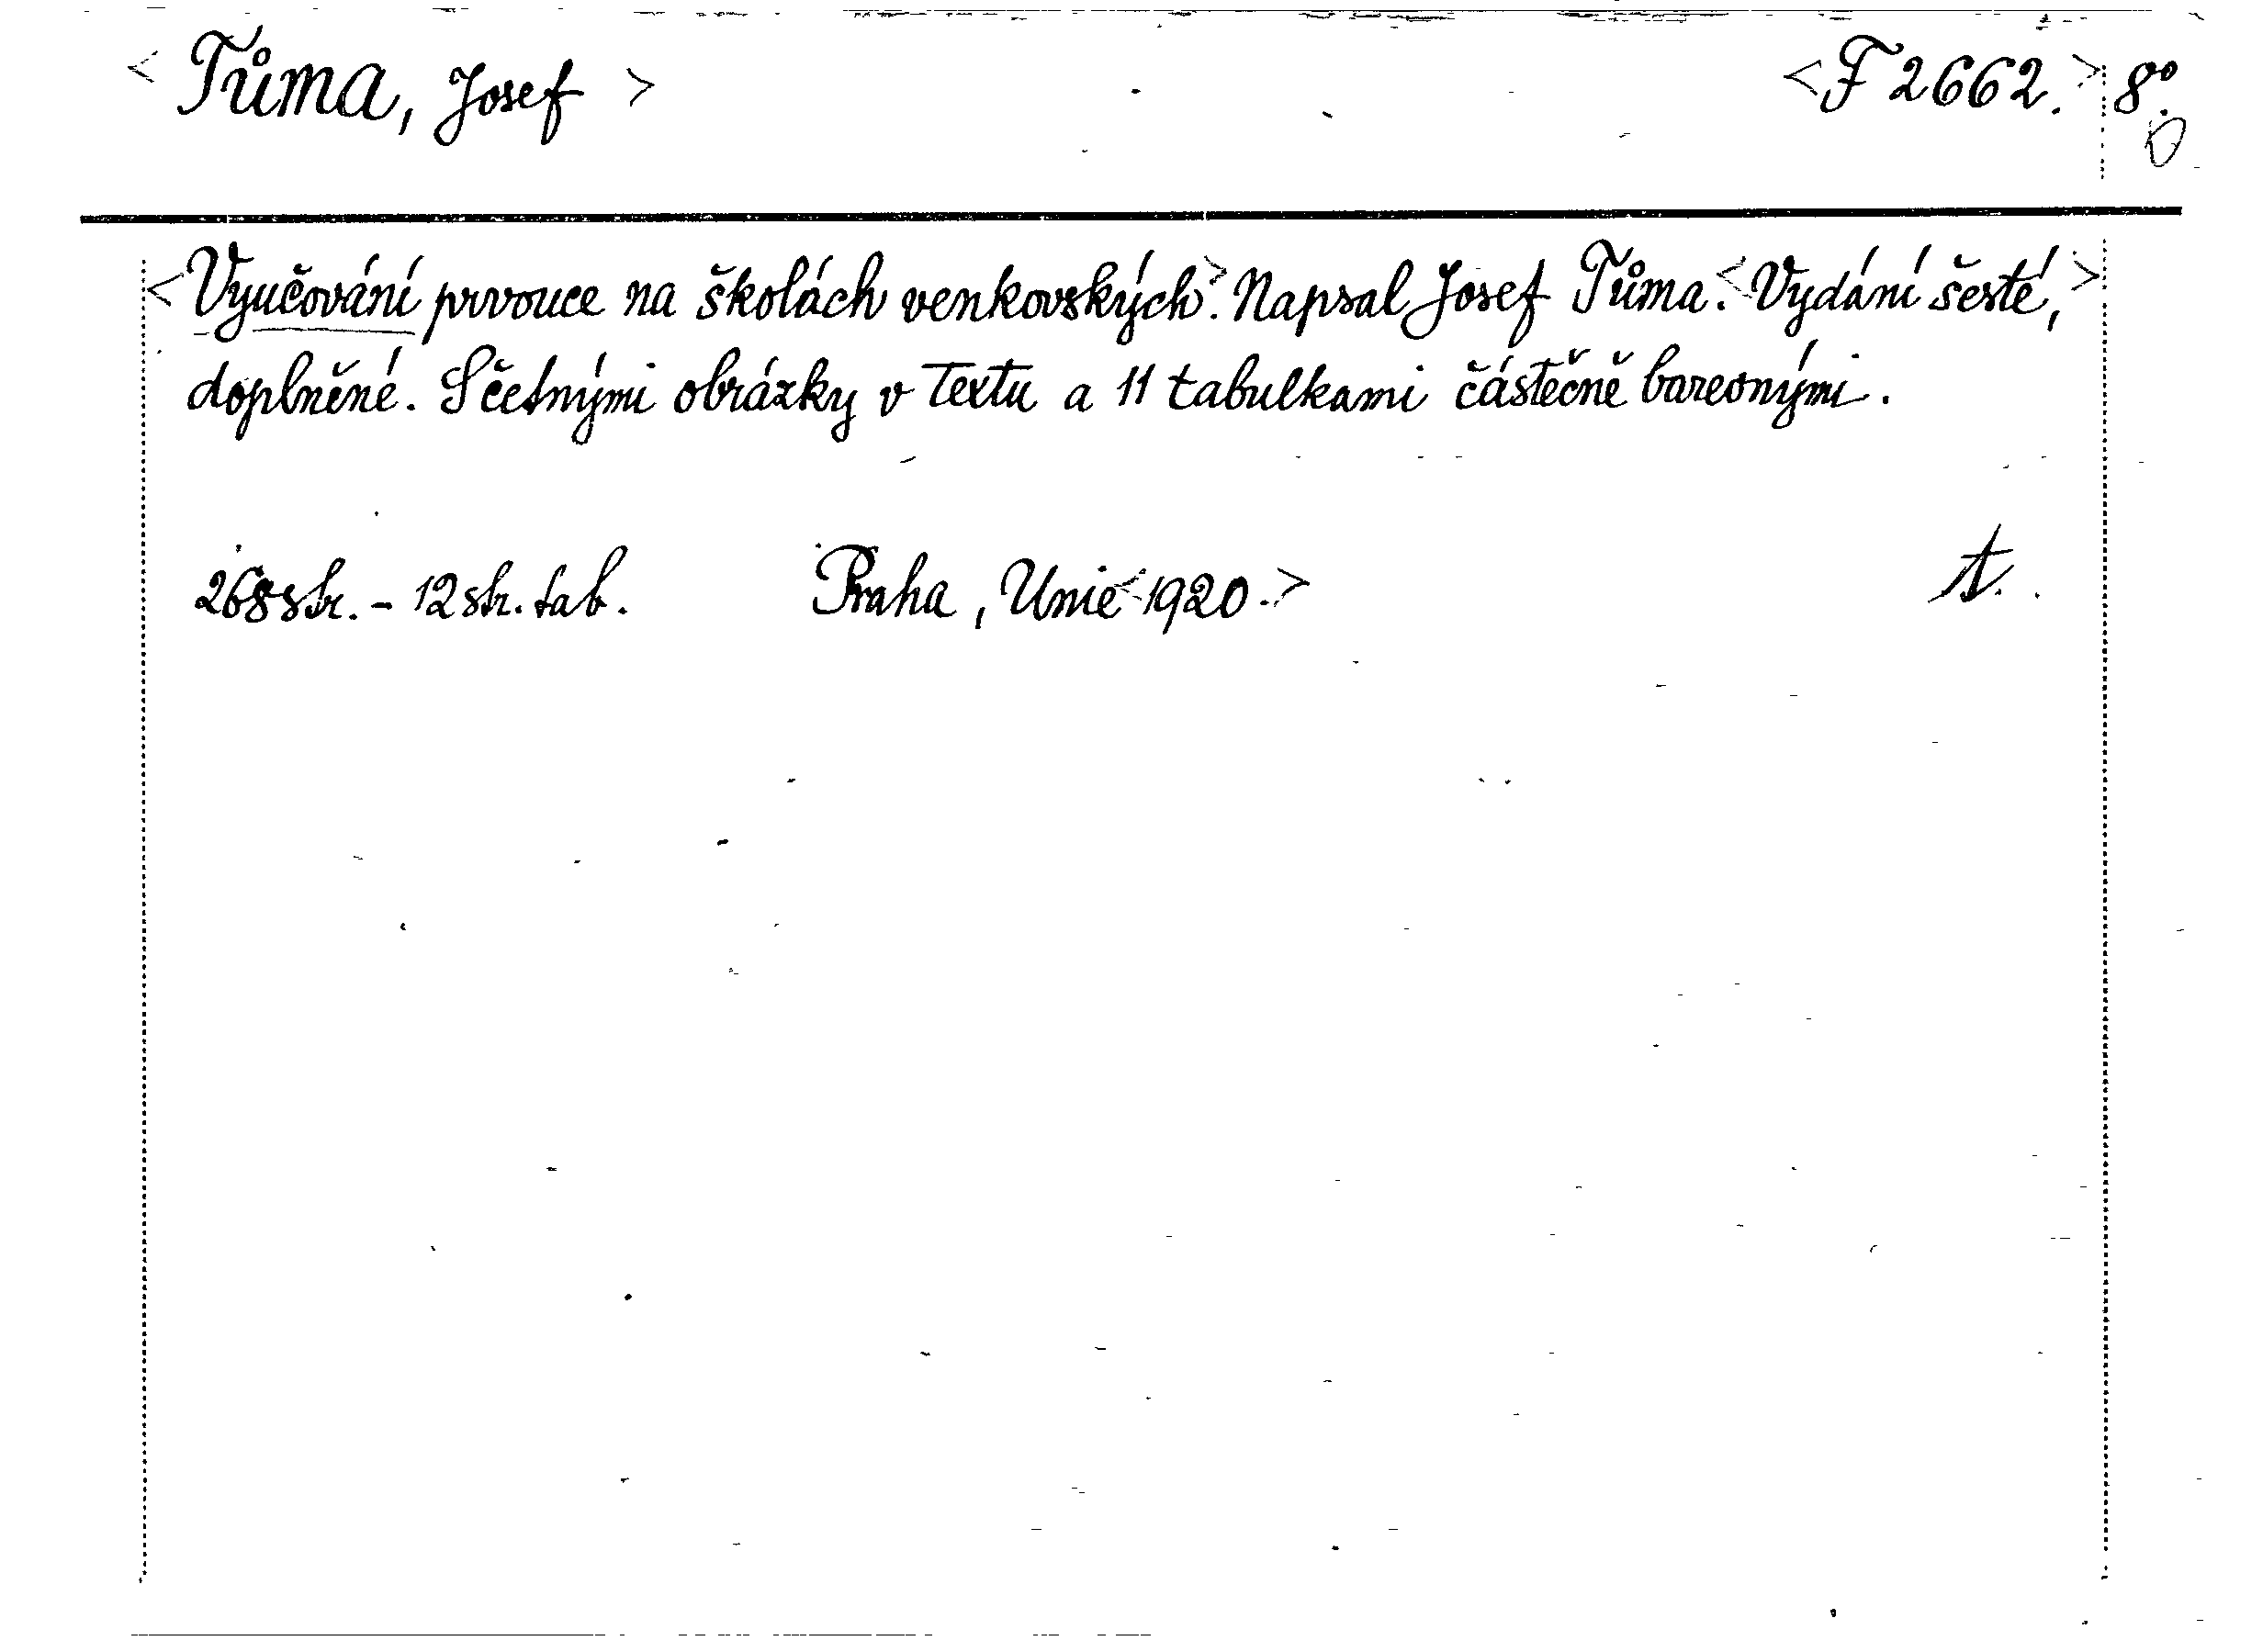 < Tůma, Josef > <F 2662.> 8°.
<Vyučování prvouce na školách venkovských>. Napsal Josef Tůma. <Vydání šesté,>
doplněné. S četnými obrázky v textu a 11 tabulkami částečně barevnými.
268 str. - 12 str. tab. Praha, Unie <1920.> t.